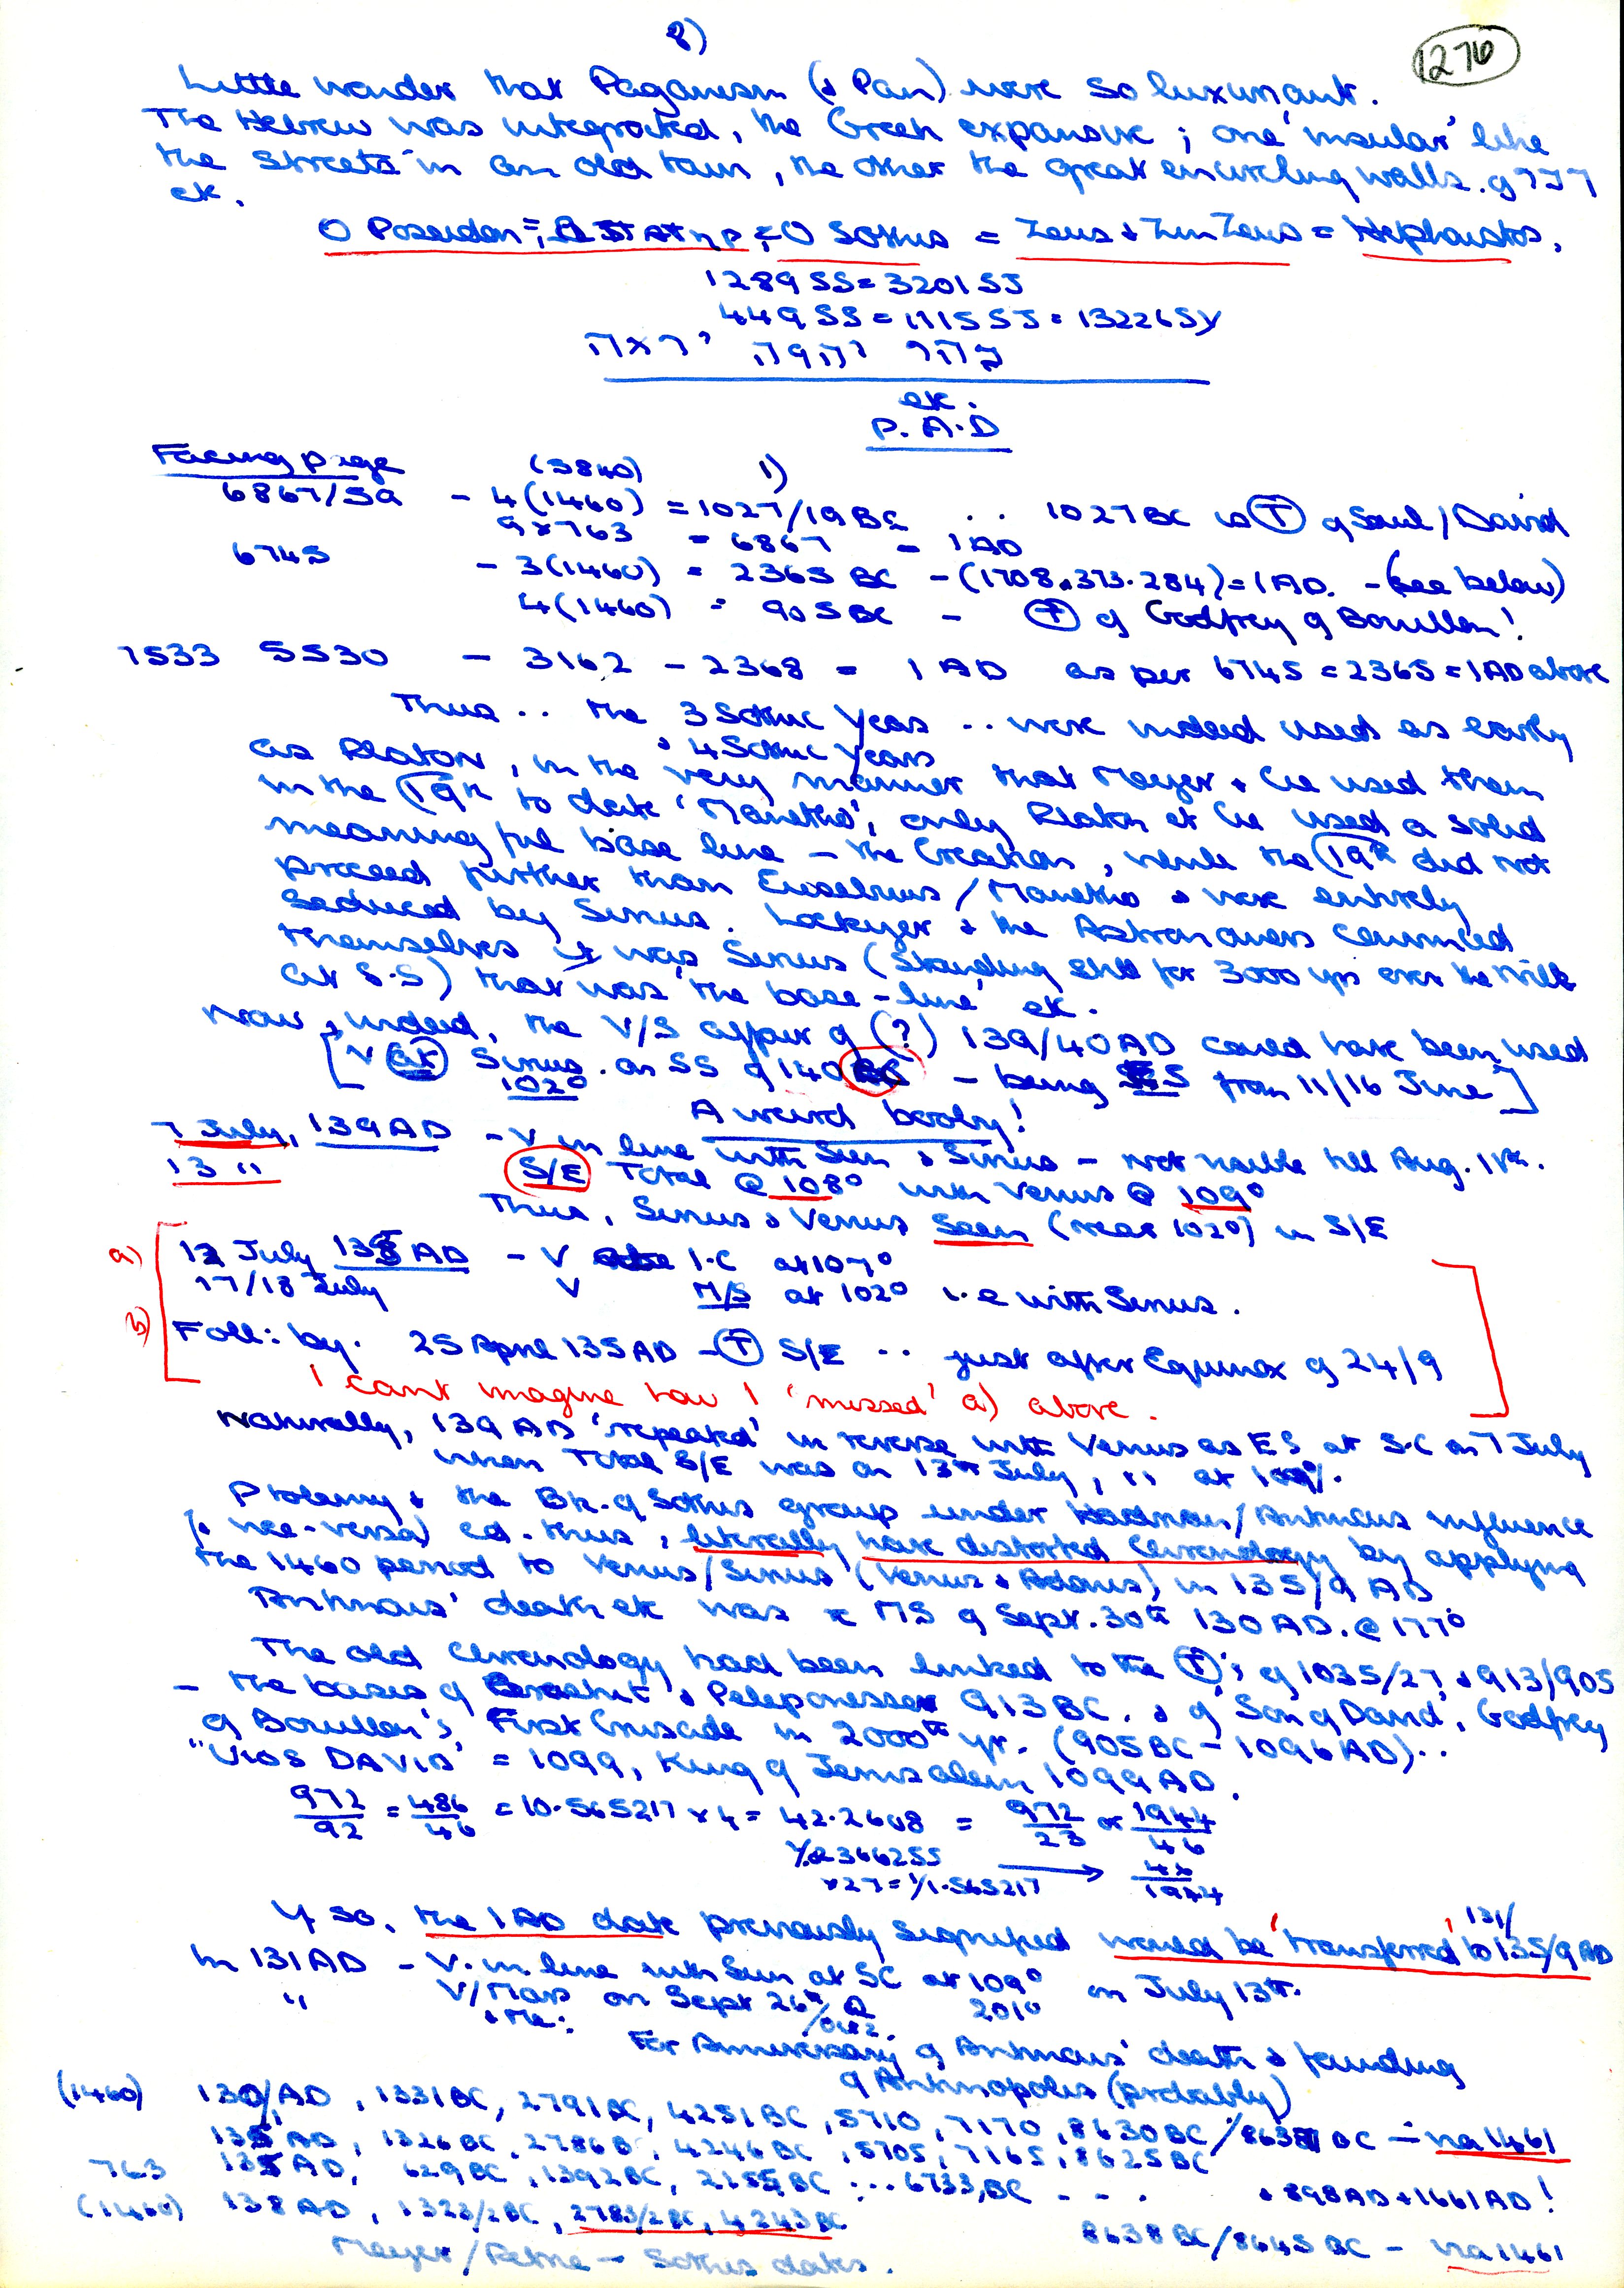 8)
1276
Little wonder that Paganism (& Pan) were so luxuriant.
The Hebrew was integrated, the Greek expansive; one 'insular' like
the streets in an old town, the other the great encircling walls. of
etc.
O Poseidon = = O Sothis = Zeus & Zen Zeus = Hephaistos.
1289 SS = 3201 SJ
449 SS = 1115 SJ = 13226 SY
etc.
P.A.D
Facing page (5840) 1)
6867/59 - 4(1460) = 1027/19 BC .. 1027 BC is (T) of Saul/David
9x763 = 6867 = 1 AD
6745 - 3(1460) = 2365 BC - (1708.373.284) = 1 AD. - (see below)
4(1460) = 905 BC - (T) of Godfrey of Bouillon!
7533 5530 - 3162 - 2368 = 1 AD as per 6745 = 2365 = 1 AD above
Thus .. the 3 Sothic Years .. were indeed used as early
& 4 Sothic Years
as Platon, in the very manner that Meyer & Co used them
in the 19th to date 'Manetho', only Platon et Co used a solid
meaningful base line - the Creation, while the 19th did not
proceed further than Eusebius/Manetho & were entirely
seduced by Sirius. Lockyer & the Astronomers convinced
themselves it was Sirius (standing still for 3000 yrs over the Nile
at S.S) that was 'the base-line' etc.
Now, indeed, the V/S affair of (?) 139/40 AD could have been used
[V at Sirius on SS of 140 - being from 11/16 June]
102°
A weird booby!
7 July, 139 AD - V in line with Sun & Sirius - not visible till Aug. 11th.
13 " S/E Total @ 108° with Venus @ 109°
Thus, Sirius & Venus Seen (near 102°) in S/E
a) 12 July 135 AD - V I.C at 107°
17/18 July V M/S at 102° i.e with Sirius.
b) Foll: by. 25 April 135 AD - (T) S/E .. just after Equinox of 24/9
I can't imagine how I 'missed' a) above.
Naturally, 139 AD 'repeated' in reverse with Venus as ES at S.C on 7 July
when Total S/E was on 13th July, " at
Ptolemy & the Bk. of Sothis group under Hadrian/Antinous influence
(& vice-versa) cd. thus, literally have distorted Chronology by applying
the 1460 period to Venus/Sirius (Venus & Adonis) in 135/9 AD
Antinous' death etc was MS of Sept. 30th 130 AD. @ 177°
The old Chronology had been linked to the (T)'s of 1035/27, & 913/905
- the basis of & 913 BC. & of Son of David, Godfrey
of Bouillon's, First Crusade in 2000th yr. (905 BC - 1096 AD)..
"Uios DAVID" = 1099, King of Jerusalem 1099 AD.
972/92 = 486/46 = 10.565217 x 4 = 42.2608 = 972/23 or 1944/46
x27 = 1/1.565217 → 46/1944
If so, the 1 AD date previously signified would be 'transferred' to 131/135/9 AD
In 131 AD - V. in line with Sun at SC at 109° on July 13th.
" V/Mars on Sept 26th 201°
& Me:
For Anniversary of Antinous' death & founding
of Antinopolis (probably)
(1460) 130/AD, 1331 BC, 2791 BC, 4251 BC, 5710, 7170, 8630 BC/ BC - via 1461
135 AD, 1326 BC, 2786 BC, 4246 BC, 5705, 7165, 8625 BC
763 135 AD, 629 BC, 1392 BC, 2155 BC ... 6733, BC - - . & 898 AD & 1661 AD!
(1460) 138 AD, 1323/2 BC, 2783/2 BC, 4243 BC 8638 BC/8645 BC - via 1461
Meyer/Petrie - Sothis dates.